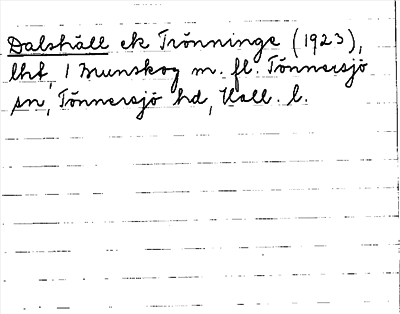 Dalshäll ek Trönninge (1923),
lht, 1 Munskog m. fl. Tönnersjö
sn, Tönnersjö hd, Hall. l.